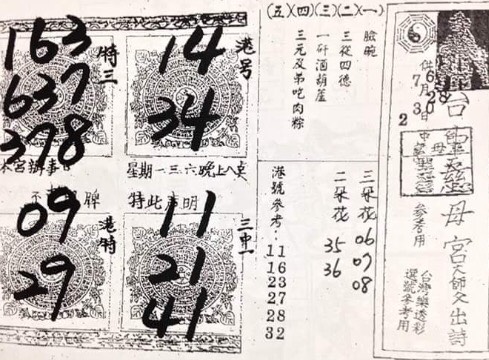 供6月08
7月30日
2
台
母宮天師文出詩
參考用
台灣樂透彩
選號參考用
(五)(四)(三)(二)(一)
臉腕
三從四德
一矸酒葫蘆
三元及弟吃肉粽
三朵花 06 07 08
二朵花 35 36
港號參考:11 16 23 27 28 32
港号
14
34
特三
163
637
378
本宮辦事日
星期一三六晚上八点
特此声明
三中一
11
21
41
港特
09
29